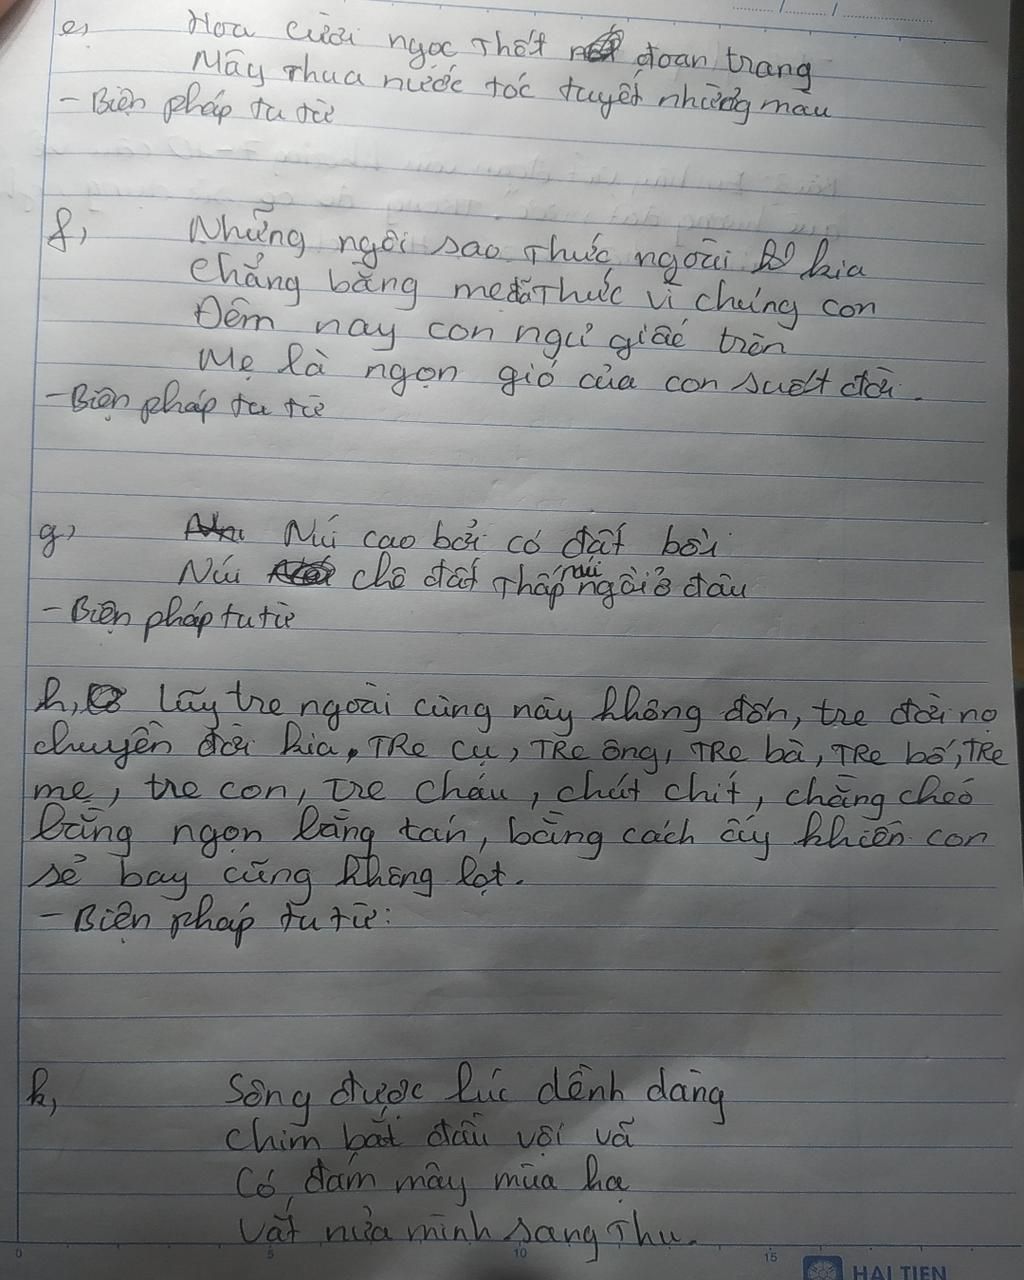 e, Hoa cười ngọc thốt đoan trang
Mây thua nước tóc tuyết nhường màu
- Biện pháp tu từ
f, Những ngôi sao thức ngoài kia
Chẳng bằng mẹ đã thức vì chúng con
Đêm nay con ngủ giấc tròn
Mẹ là ngọn gió của con suốt đời.
- Biện pháp tu từ
g, Núi cao bởi có đất bồi
Núi chê đất thấp núi ngồi ở đâu
- Biện pháp tu từ
h, Lũy tre ngoài cùng này không đốn, tre đời nọ
chuyền đời kia, TRe cụ, TRe ông, TRe bà, TRe bố, TRe
mẹ, tre con, tre cháu, chút chít, chằng chéo
bằng ngọn bằng tán, bằng cách ấy khiến con
sẻ bay cũng không lọt.
- Biện pháp tu từ:
k, Sông được lúc dềnh dàng
Chim bắt đầu vội vã
Có đám mây mùa hạ
Vắt nửa mình sang thu.
0 5 10 15
HẢI TIẾN